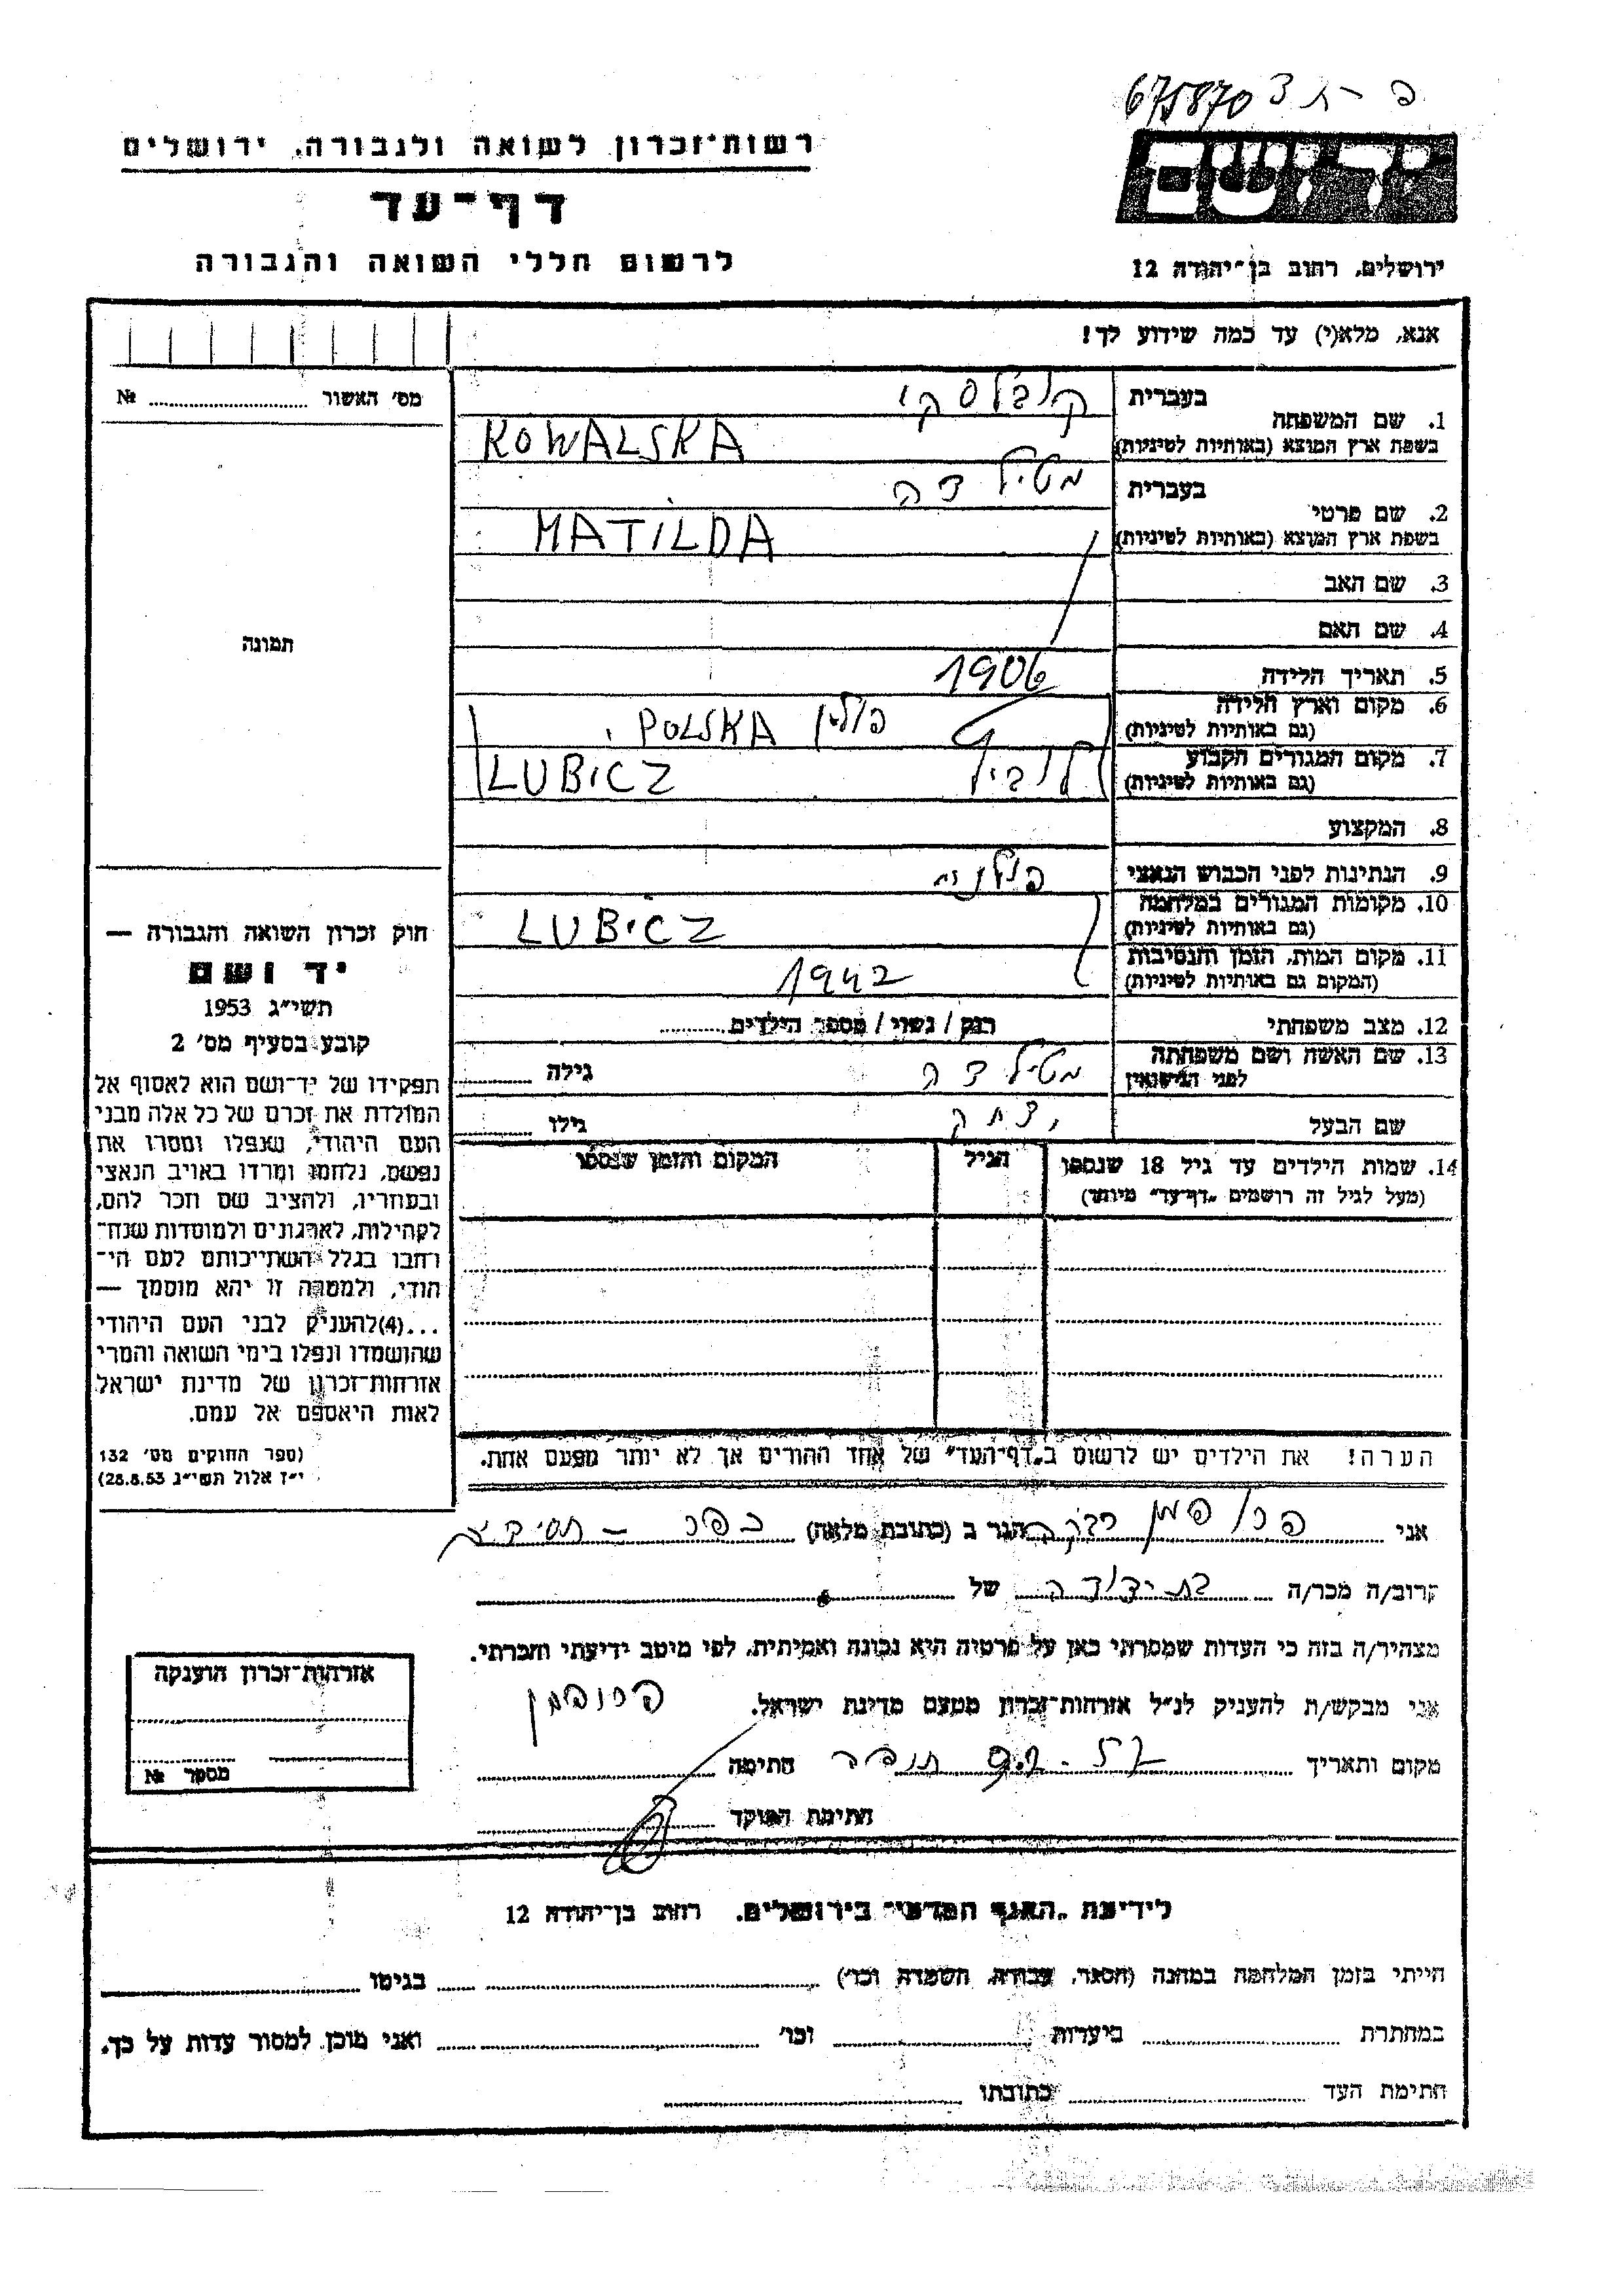 675870 3
רשות־זכרון לשואה ולגבורה, ירושלים
יד ושם
דף־עד
לרשום חללי השואה והגבורה
ירושלים, רחוב בן־יהודה 12
אנא, מלא(י) עד כמה שידוע לך!
מס׳ האשור № 
תמונה
1. שם המשפחה בעברית קובלסקי
בשפת ארץ המוצא (באותיות לטיניות) KOWALSKA
2. שם פרטי בעברית מטילדה
בשפת ארץ המוצא (באותיות לטיניות) MATILDA
3. שם האב
4. שם האם
5. תאריך הלידה 1906
6. מקום וארץ הלידה
(גם באותיות לטיניות) פולין POLSKA
7. מקום המגורים הקבוע
(גם באותיות לטיניות) LUBICZ
8. המקצוע
9. הנתינות לפני הכבוש הנאצי פולנית
10. מקומות המגורים במלחמה
(גם באותיות לטיניות) LUBICZ
11. מקום המות, הזמן והנסיבות
(המקום גם באותיות לטיניות) 1942
12. מצב משפחתי רוק / נשוי / מספר הילדים
13. שם האשה ושם משפחתה
לפני הנישואין מטילדה גילה
שם הבעל גילו
14. שמות הילדים עד גיל 18 שנספו הגיל המקום והזמן שנספו
(מעל לגיל זה רושמים „דף־עד” מיוחד)
חוק זכרון השואה והגבורה —
יד ושם
תשי״ג 1953
קובע בסעיף מס׳ 2
תפקידו של יד־ושם הוא לאסוף אל
המולדת את זכרם של כל אלה מבני
העם היהודי, שנפלו ומסרו את
נפשם, נלחמו ומרדו באויב הנאצי
ובעוזריו, ולהציב שם וזכר להם,
לקהילות, לארגונים ולמוסדות שנח־
רבו בגלל השתייכותם לעם הי־
הודי, ולמטרה זו יהא מוסמך —
...(4) להעניק לבני העם היהודי
שהושמדו ונפלו בימי השואה והמרי
אזרחות־זכרון של מדינת ישראל
לאות היאספם אל עמם.
(ספר החוקים מס׳ 132
י״ז אלול תשי״ג 28.8.53)
הערה! את הילדים יש לרשום ב„דף־העד” של אחד ההורים אך לא יותר מפעם אחת.
אני רבקה הגר ב (כתובת מלאה)
קרוב/ה מכר/ה של
מצהיר/ה בזה כי העדות שמסרתי כאן על פרטיה היא נכונה ואמיתית, לפי מיטב ידיעתי והכרתי.
אני מבקש/ת להעניק לנ״ל אזרחות־זכרון מטעם מדינת ישראל.
מקום ותאריך חתימה
חתימת הפוקד
אזרחות־זכרון הוענקה
מספר №
לידיעת „האגף המדעי” בירושלים, רחוב בן־יהודה 12
הייתי בזמן המלחמה במחנה (הסגר, עבודה, השמדה וכו׳) בגיטו
במחתרת ביערות וכו׳ ואני מוכן למסור עדות על כך.
חתימת העד כתובתו